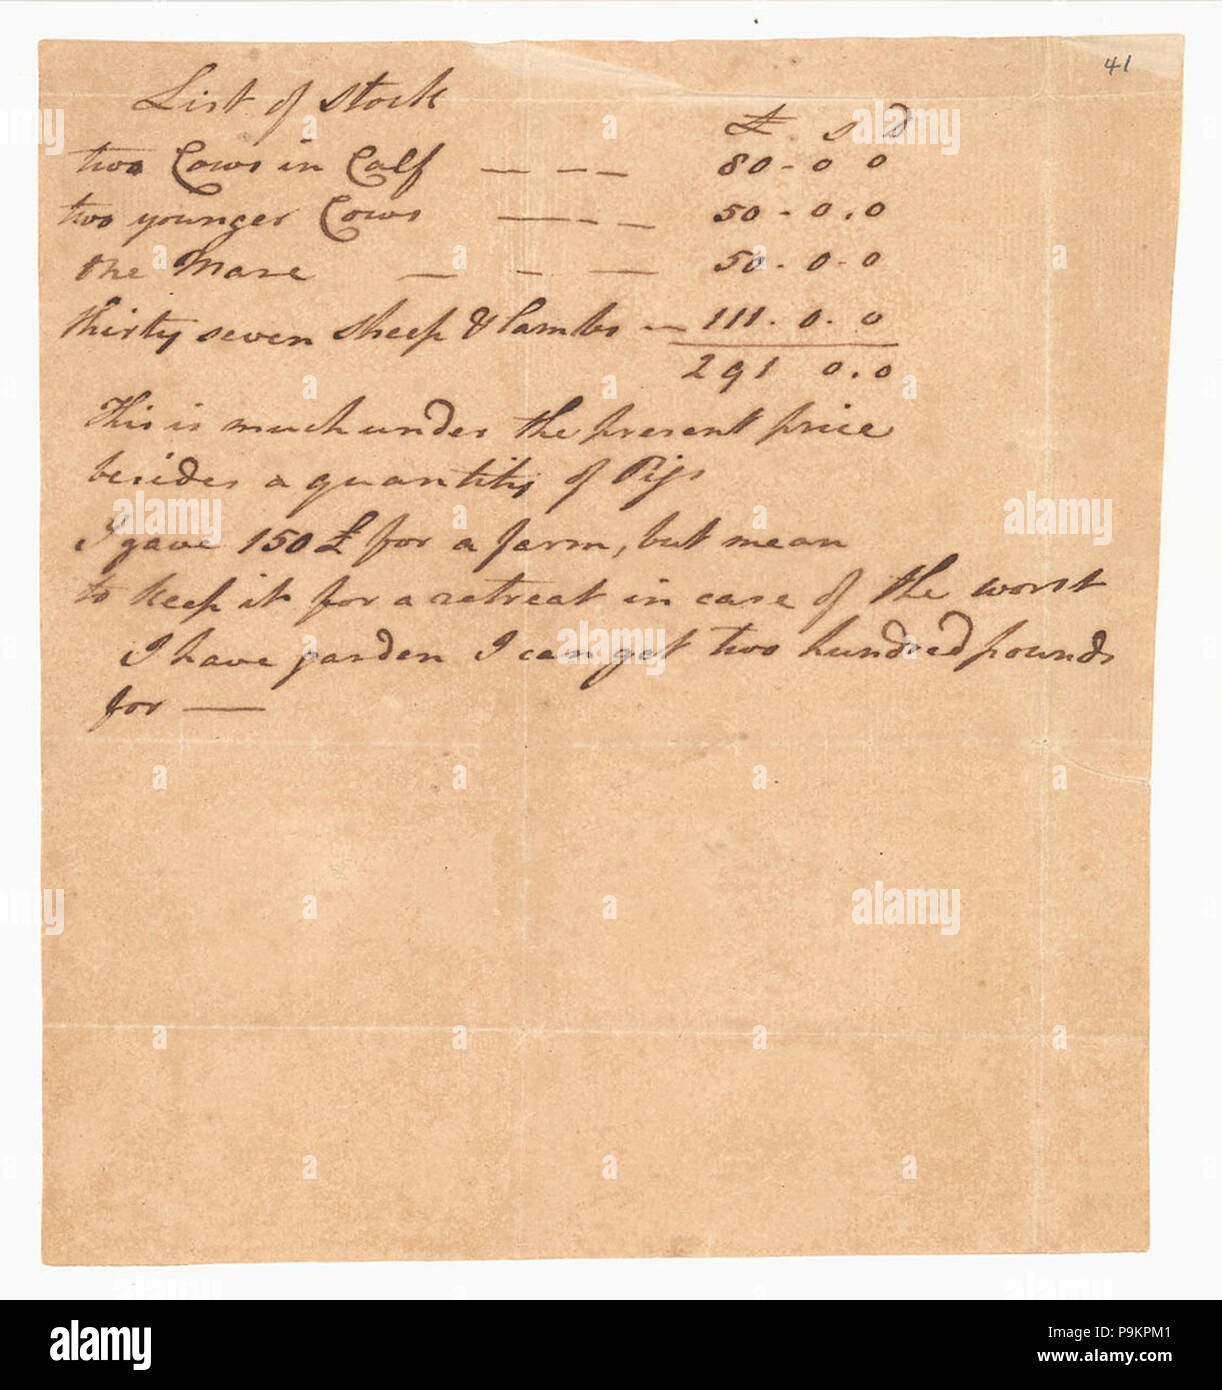 41
List of Stock
£ s d
two Cows in Calf — — — 80 - 0 0
two younger Cows — — — 50 - 0 . 0
one Mare — — — 50 - 0 - 0
thirty seven sheep & lambs — 111 . 0 . 0
291 0 . 0
This is much under the present price
besides a quantity of Pigs
I gave 150 £ for a farm, but mean
to keep it for a retreat in case of the worst
I have garden I can get two hundred pounds
for —
alamy
a
alamy
Image ID: P9KPM1
www.alamy.com